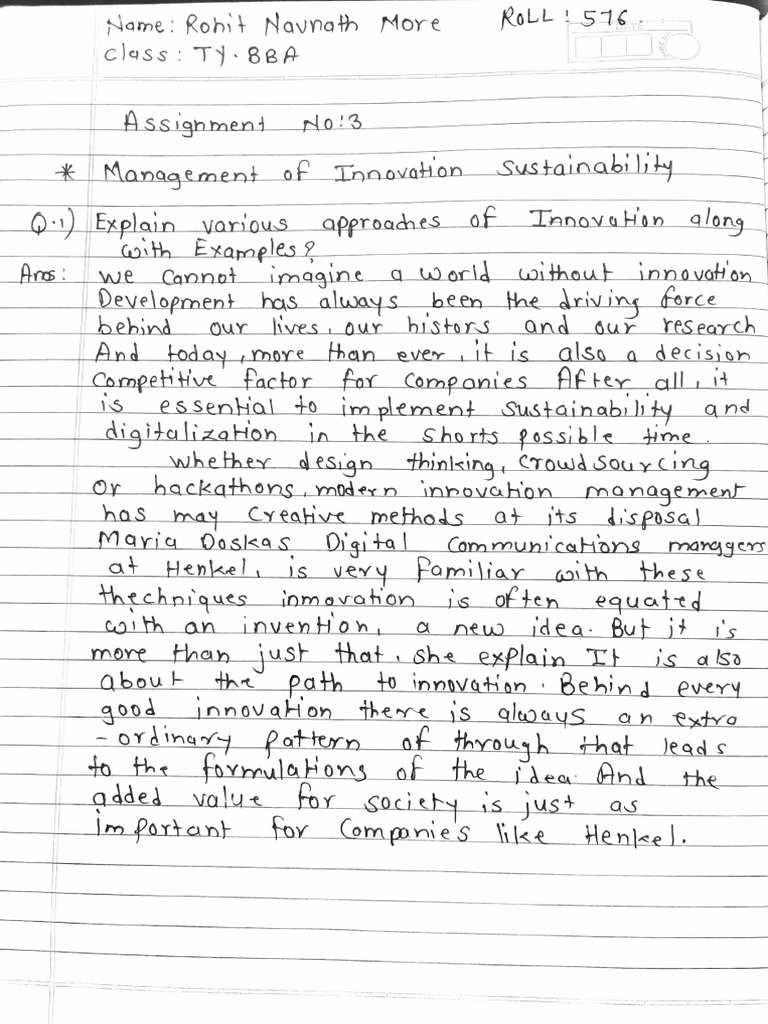 Name: Rohit Navnath More ROLL: 576.
Class: TY. BBA
Assignment No:3
* Management of Innovation Sustainability
Q.1) Explain various approaches of Innovation along
with Examples?
Ans: We Cannot imagine a world without innovation
Development has always been the driving force
behind our lives, our histors and our research
And today, more than ever, it is also a decision
Competitive factor for Companies After all, it
is essential to implement sustainability and
digitalization in the shorts possible time.
whether design thinking, crowdsourcing
or hackathons, modern innovation management
has may Creative methods at its disposal
Maria Doskas Digital Communications managers
at Henkel, is very familiar with these
thechniques inmovation is often equated
with an invention, a new idea. But it is
more than just that, she explain It is also
about the path to innovation. Behind every
good innovation there is always an extra
- ordinary pattern of through that leads
to the formulations of the idea. And the
added value for society is just as
important for Companies like Henkel.